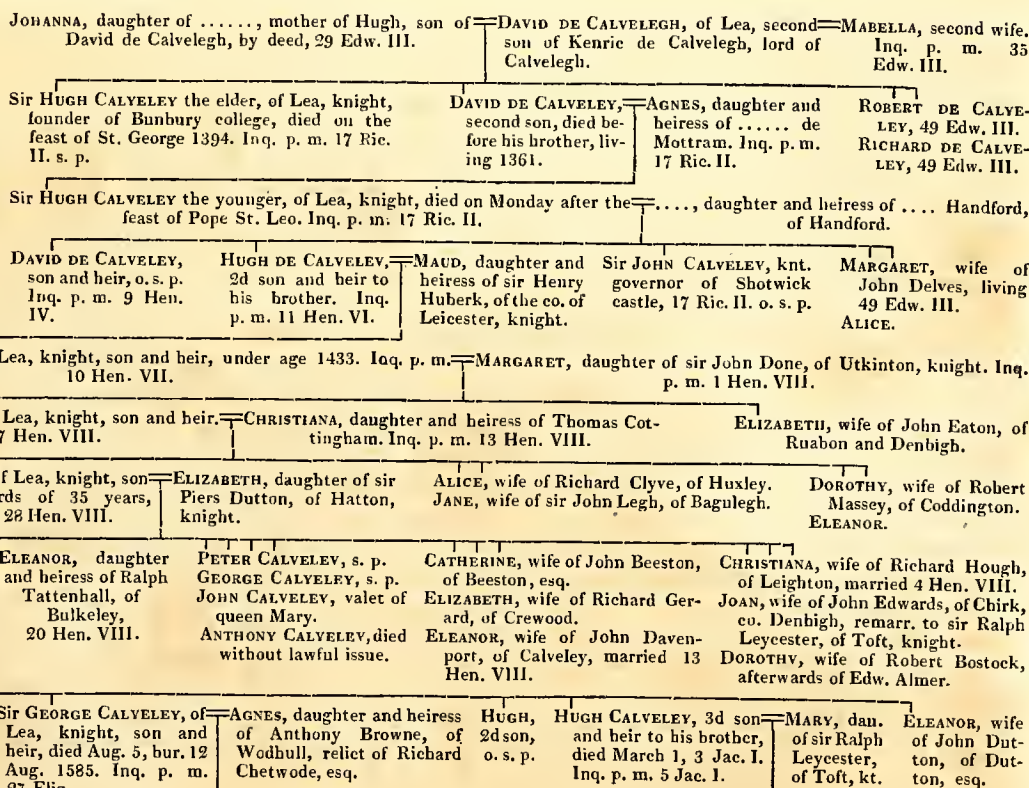 JOHANNA, daughter of ......., mother of Hugh, son of
David de Calvelegh, by deed, 29 Edw. III.
DAVID DE CALVELEGH, of Lea, second
son of Kenric de Calvelegh, lord of
Calvelegh.
MABELLA, second wife.
Inq. p. m. 35
Edw. III.
Sir HUGH CALVELEY the elder, of Lea, knight,
founder of Bunbury college, died on the
feast of St. George 1394. Inq. p. m. 17 Ric.
II. s. p.
DAVID DE CALVELEY,
second son, died be-
fore his brother, liv-
ing 1361.
AGNES, daughter and
heiress of ...... de
Mottram. Inq. p. m.
17 Ric. II.
ROBERT DE CALVE-
LEY, 49 Edw. III.
RICHARD DE CALVE-
LEY, 49 Edw. III.
Sir HUGH CALVELEY the younger, of Lea, knight, died on Monday after the
feast of Pope St. Leo. Inq. p. m. 17 Ric. II.
...., daughter and heiress of .... Handford,
of Handford.
DAVID DE CALVELEY,
son and heir, o. s. p.
Inq. p. m. 9 Hen.
IV.
HUGH DE CALVELEY,
2d son and heir to
his brother. Inq.
p. m. 11 Hen. VI.
MAUD, daughter and
heiress of sir Henry
Huberk, of the co. of
Leicester, knight.
Sir JOHN CALVELEY, knt.
governor of Shotwick
castle, 17 Ric. II. o. s. p.
MARGARET, wife of
John Delves, living
49 Edw. III.
ALICE.
Lea, knight, son and heir, under age 1433. Inq. p. m.
10 Hen. VII.
MARGARET, daughter of sir John Done, of Utkinton, knight. Inq.
p. m. 1 Hen. VIII.
Lea, knight, son and heir.
7 Hen. VIII.
CHRISTIANA, daughter and heiress of Thomas Cot-
tingham. Inq. p. m. 13 Hen. VIII.
ELIZABETH, wife of John Eaton, of
Ruabon and Denbigh.
f Lea, knight, son
rds of 35 years,
28 Hen. VIII.
ELIZABETH, daughter of sir
Piers Dutton, of Hatton,
knight.
ALICE, wife of Richard Clyve, of Huxley.
JANE, wife of sir John Legh, of Bagulegh.
DOROTHY, wife of Robert
Massey, of Coddington.
ELEANOR.
ELEANOR, daughter
and heiress of Ralph
Tattenhall, of
Bulkeley,
20 Hen. VIII.
PETER CALVELEY, s. p.
GEORGE CALVELEY, s. p.
JOHN CALVELEY, valet of
queen Mary.
ANTHONY CALVELEY, died
without lawful issue.
CATHERINE, wife of John Beeston,
of Beeston, esq.
ELIZABETH, wife of Richard Ger-
ard, of Crewood.
ELEANOR, wife of John Daven-
port, of Calveley, married 13
Hen. VIII.
CHRISTIANA, wife of Richard Hough,
of Leighton, married 4 Hen. VIII.
JOAN, wife of John Edwards, of Chirk,
co. Denbigh, remarr. to sir Ralph
Leycester, of Toft, knight.
DOROTHY, wife of Robert Bostock,
afterwards of Edw. Almer.
Sir GEORGE CALVELEY, of
Lea, knight, son and
heir, died Aug. 5, bur. 12
Aug. 1585. Inq. p. m.
27 Eliz.
AGNES, daughter and heiress
of Anthony Browne, of
Wodhull, relict of Richard
Chetwode, esq.
HUGH,
2d son,
o. s. p.
HUGH CALVELEY, 3d son
and heir to his brother,
died March 1, 3 Jac. I.
Inq. p. m. 5 Jac. I.
MARY, dau.
of sir Ralph
Leycester,
of Toft, kt.
ELEANOR, wife
of John Dut-
ton, of Dut-
ton, esq.